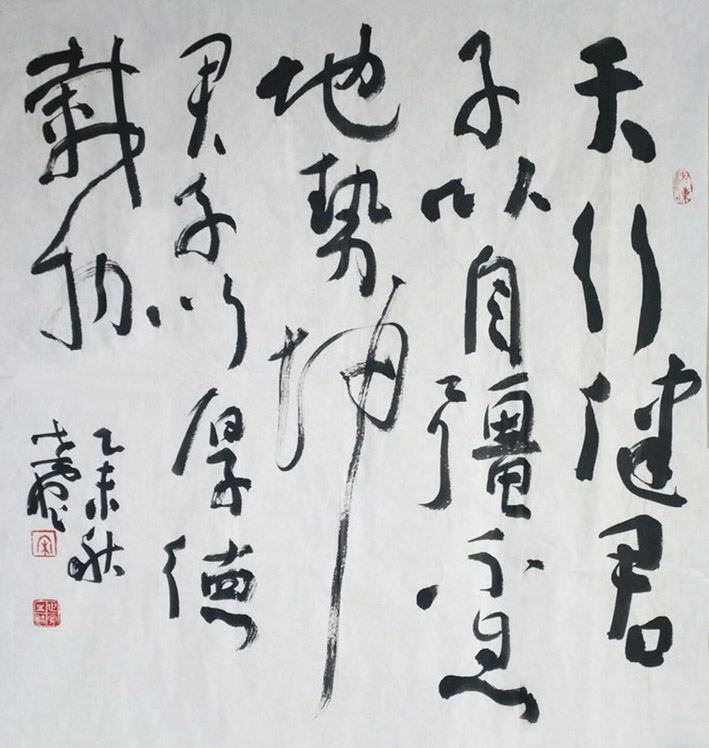 天行健君
子以自彊不息
地势坤
君子以厚德
载物
乙未秋